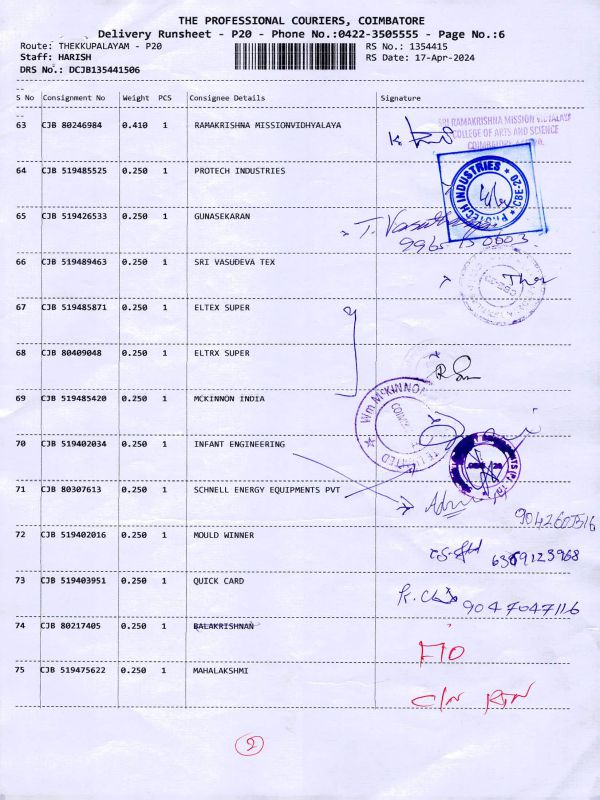 THE PROFESSIONAL COURIERS, COIMBATORE
Delivery Runsheet - P20 - Phone No.:0422-3505555 - Page No.:6
Route: THEKKUPALAYAM - P20 RS No.: 1354415
Staff: HARISH RS Date: 17-Apr-2024
DRS No.: DCJB135441506
--
S No Consignment No Weight PCS Consignee Details Signature
--
63 CJB 80246984 0.410 1 RAMAKRISHNA MISSIONVIDHYALAYA
SRI RAMAKRISHNA MISSION VIDYALAYA
COLLEGE OF ARTS AND SCIENCE
64 CJB 519485525 0.250 1 PROTECH INDUSTRIES
PROTECH INDUSTRIES CBE-20
65 CJB 519426533 0.250 1 GUNASEKARAN
66 CJB 519489463 0.250 1 SRI VASUDEVA TEX
67 CJB 519485871 0.250 1 ELTEX SUPER
68 CJB 80409048 0.250 1 ELTRX SUPER
69 CJB 519485420 0.250 1 MCKINNON INDIA
Wm. McKINNON
70 CJB 519402034 0.250 1 INFANT ENGINEERING
71 CJB 80307613 0.250 1 SCHNELL ENERGY EQUIPMENTS PVT
72 CJB 519402016 0.250 1 MOULD WINNER
6369123968
73 CJB 519403951 0.250 1 QUICK CARD
9047047116
74 CJB 80217405 0.250 1 BALAKRISHNAN
75 CJB 519475622 0.250 1 MAHALAKSHMI
C/N RTN
2